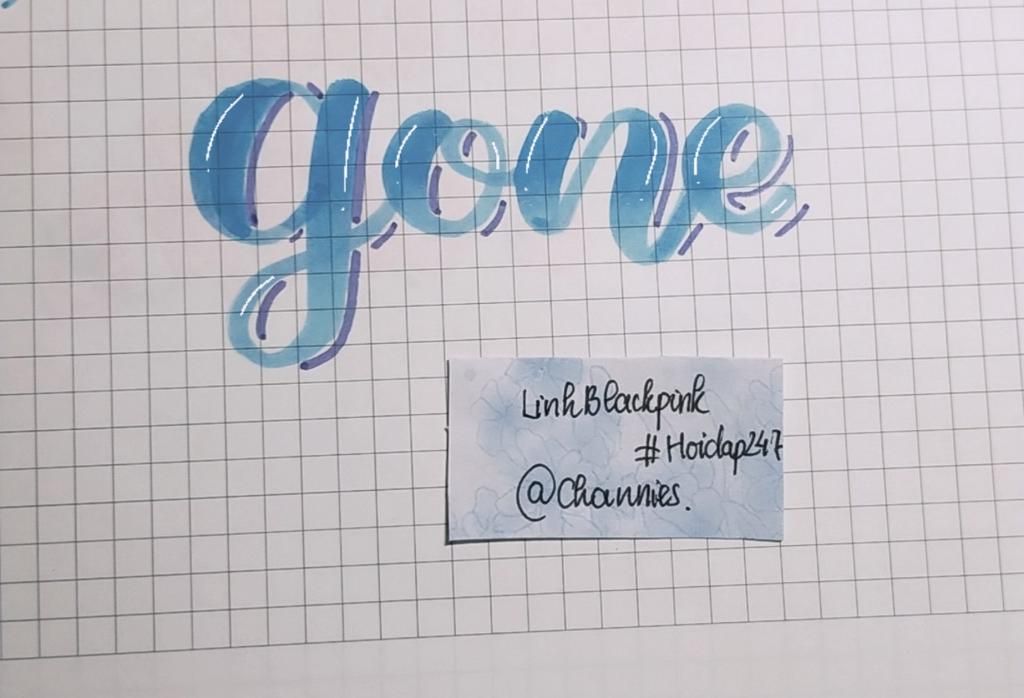 gone
LinhBlackpink
#Hoidap247
@Channies.